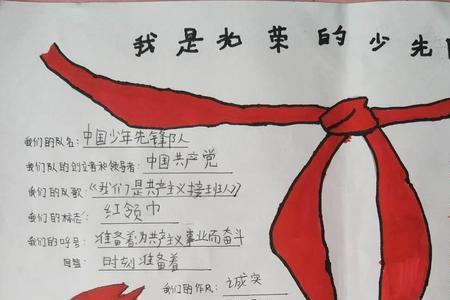 我是光荣的少先
我们的队名：中国少年先锋队
我们队的创立者和领导者：中国共产党
我们的队歌：《我们是共产主义接班人》
我们的标志：红领巾
我们的呼号：准备着：为共产主义事业而奋斗
回答：时刻准备着
我们的作风：诚实